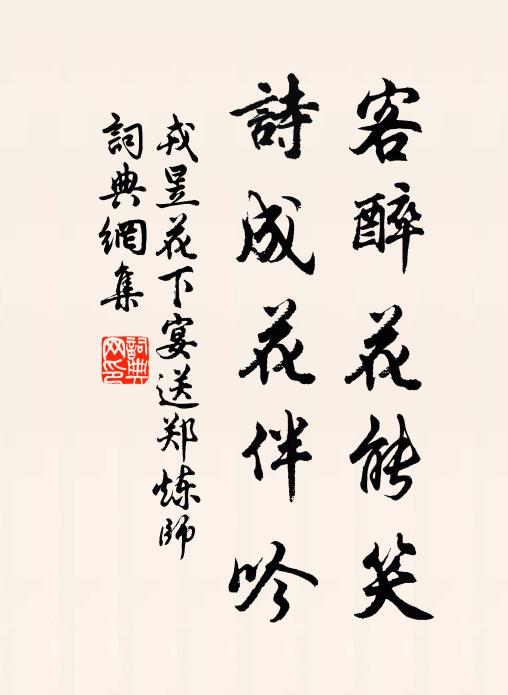 客醉花能笑
詩成花伴吟
戎昱花下宴送郑炼師
詞典網集
詞典
网印